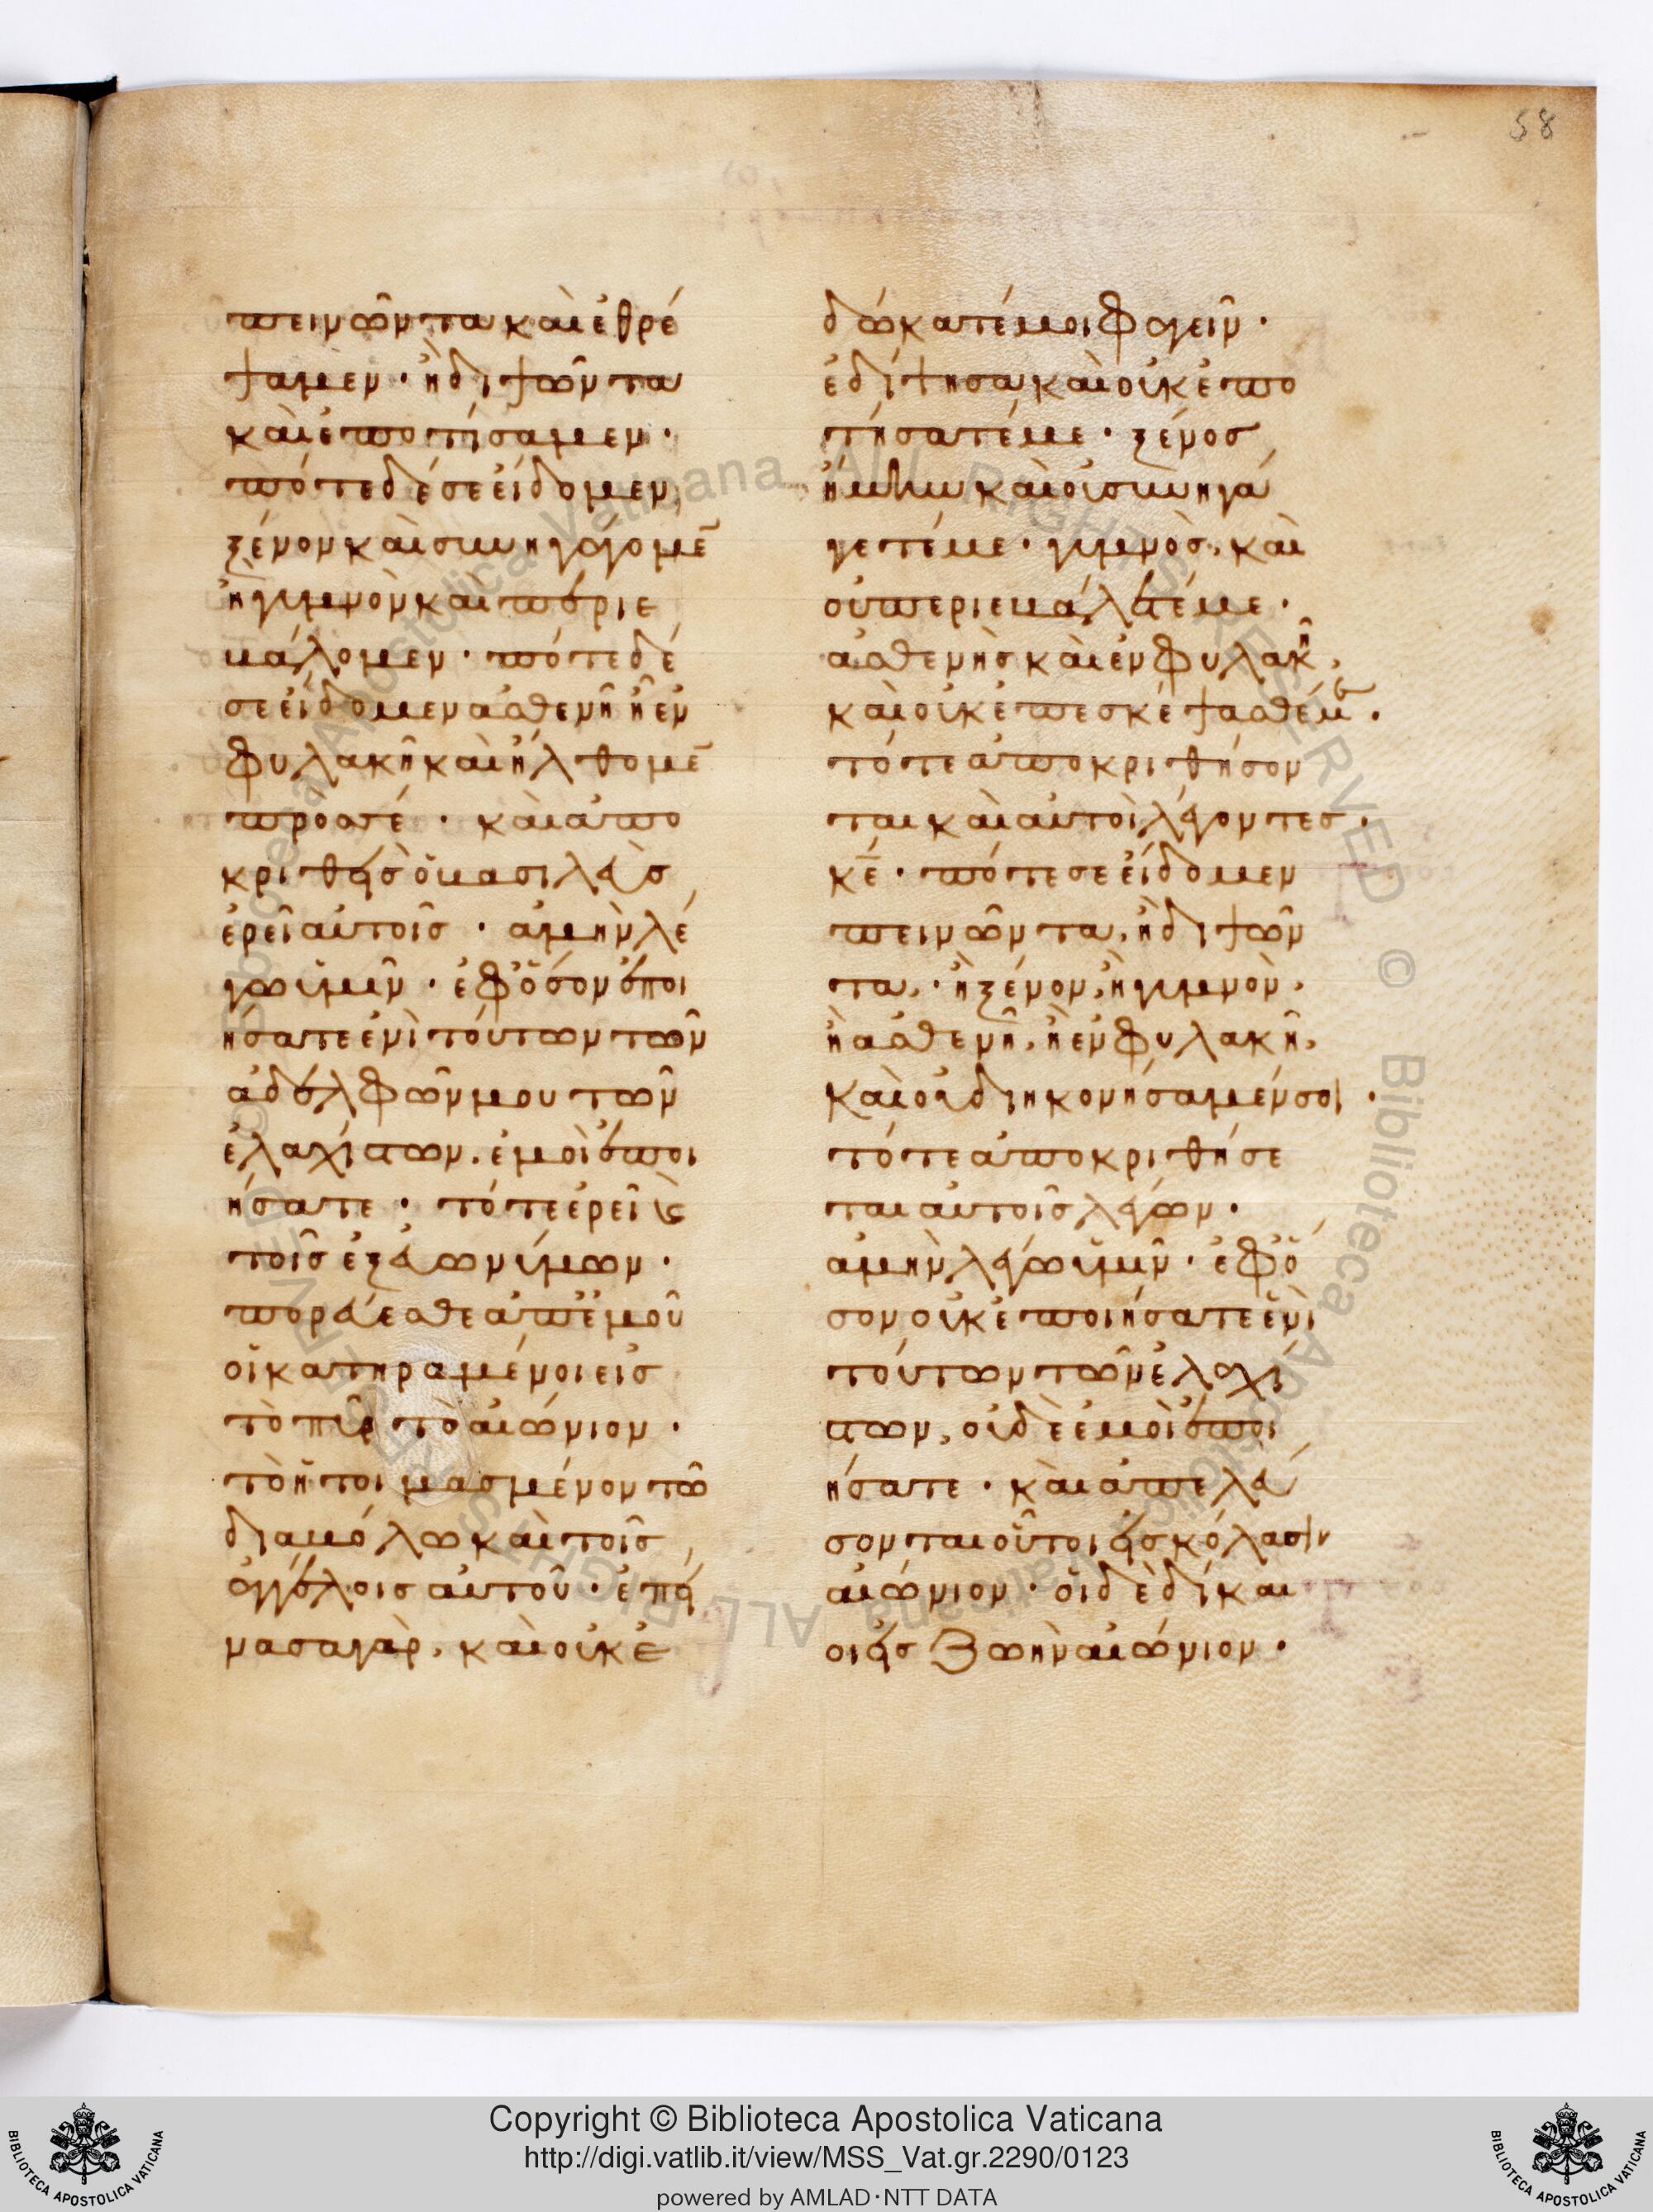 58
πεινῶντα καὶ ἐθρέ
ψαμεν · ἢ διψῶντα
καὶ ἐποτίσαμεν ·
πότε δέ σε εἴδομεν
ξένον καὶ συνηγάγομε̅
ἢ γυμνὸν καὶ περιε
βάλομεν · πότε δέ
σε εἴδομεν ἀσθενῆ ἢ ἐν
φυλακῆ καὶ ἤλθομε̅
προσ σέ · καὶ ἀπο
κριθεὶς ὁ βασιλεὺς
ἐρεῖ αὐτοῖς · ἀμὴν λέ
γω ὑμῖν · ἐφ' ὅσον ἐποι
ήσατε ἑνὶ τούτων τῶν
ἀδελφῶν μου τῶν
ἐλαχίστων, ἐμοὶ ἐποι
ήσατε · τότε ἐρεῖ ϗ
τοῖς ἐξ εὐωνύμων ·
πορεύεσθε ἀπ' ἐμοῦ
οἱ κατηραμένοι εἰς
τὸ πῦρ τὸ αἰώνιον ·
τὸ ἡτοιμασμένον τῶ
διαβόλω καὶ τοῖς
ἀγγέλοις αὐτοῦ · ἐπεί
νασα γὰρ, καὶ οὐκ ἐ
δώκατέ μοι φαγεῖν ·
ἐδίψησα καὶ οὐκ ἐπο
τήσατέ με · ξένος
ἤμην καὶ οὐ συνηγά
γετέ με · γυμνὸς, καὶ
οὐ περιεβάλετέ με ·
ἀσθενὴς καὶ ἐν φυλακῆ,
καὶ οὐκ ἐπεσκέψασθέ με ·
τότε ἀποκριθήσον
ται καὶ αὐτοὶ λέγοντες ·
κ̅ε̅ · πότε σε εἴδομεν
πεινῶντα, ἢ διψῶν
τα, · ἢ ξένον, ἢ γυμνὸν,
ἢ ἀσθενῆ, ἢ ἐν φυλακῆ,
καὶ οὐ διηκονήσαμέν σοι ·
τότε ἀποκριθήσε
ται αὐτοῖς λέγων ·
ἀμὴν λέγω ὑμῖν · ἐφ' ὅ
σον οὐκ ἐποιήσατε ἑνὶ
τούτων τῶν ἐλαχί
στων, οὐδὲ ἐμοὶ ἐποι
ήσατε · καὶ ἀπελεύ
σονται οὗτοι εἰς κόλασιν
αἰώνιον · οἱ δὲ δίκαι
οι εἰς ζωὴν αἰώνιον ·
Copyright © Biblioteca Apostolica Vaticana
http://digi.vatlib.it/view/MSS_Vat.gr.2290/0123
powered by AMLAD·NTT DATA
BIBLIOTECA APOSTOLICA VATICANA
BIBLIOTECA APOSTOLICA VATICANA
© Biblioteca Apostolica Vaticana ALL RIGHTS RESERVED
© Biblioteca Apostolica Vaticana ALL RIGHTS RESERVED